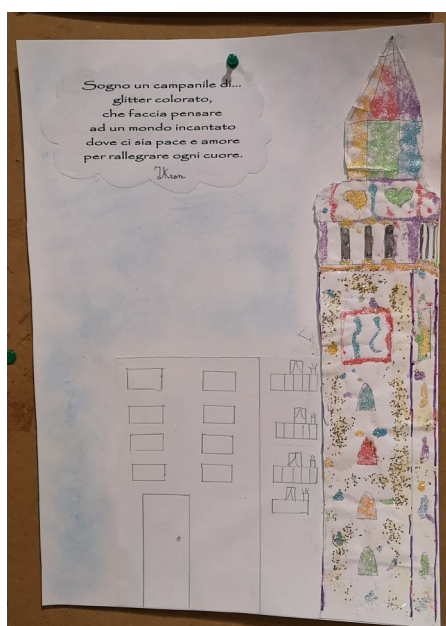 Sogno un campanile di...
glitter colorato,
che faccia pensare
ad un mondo incantato
dove ci sia pace e amore
per rallegrare ogni cuore.